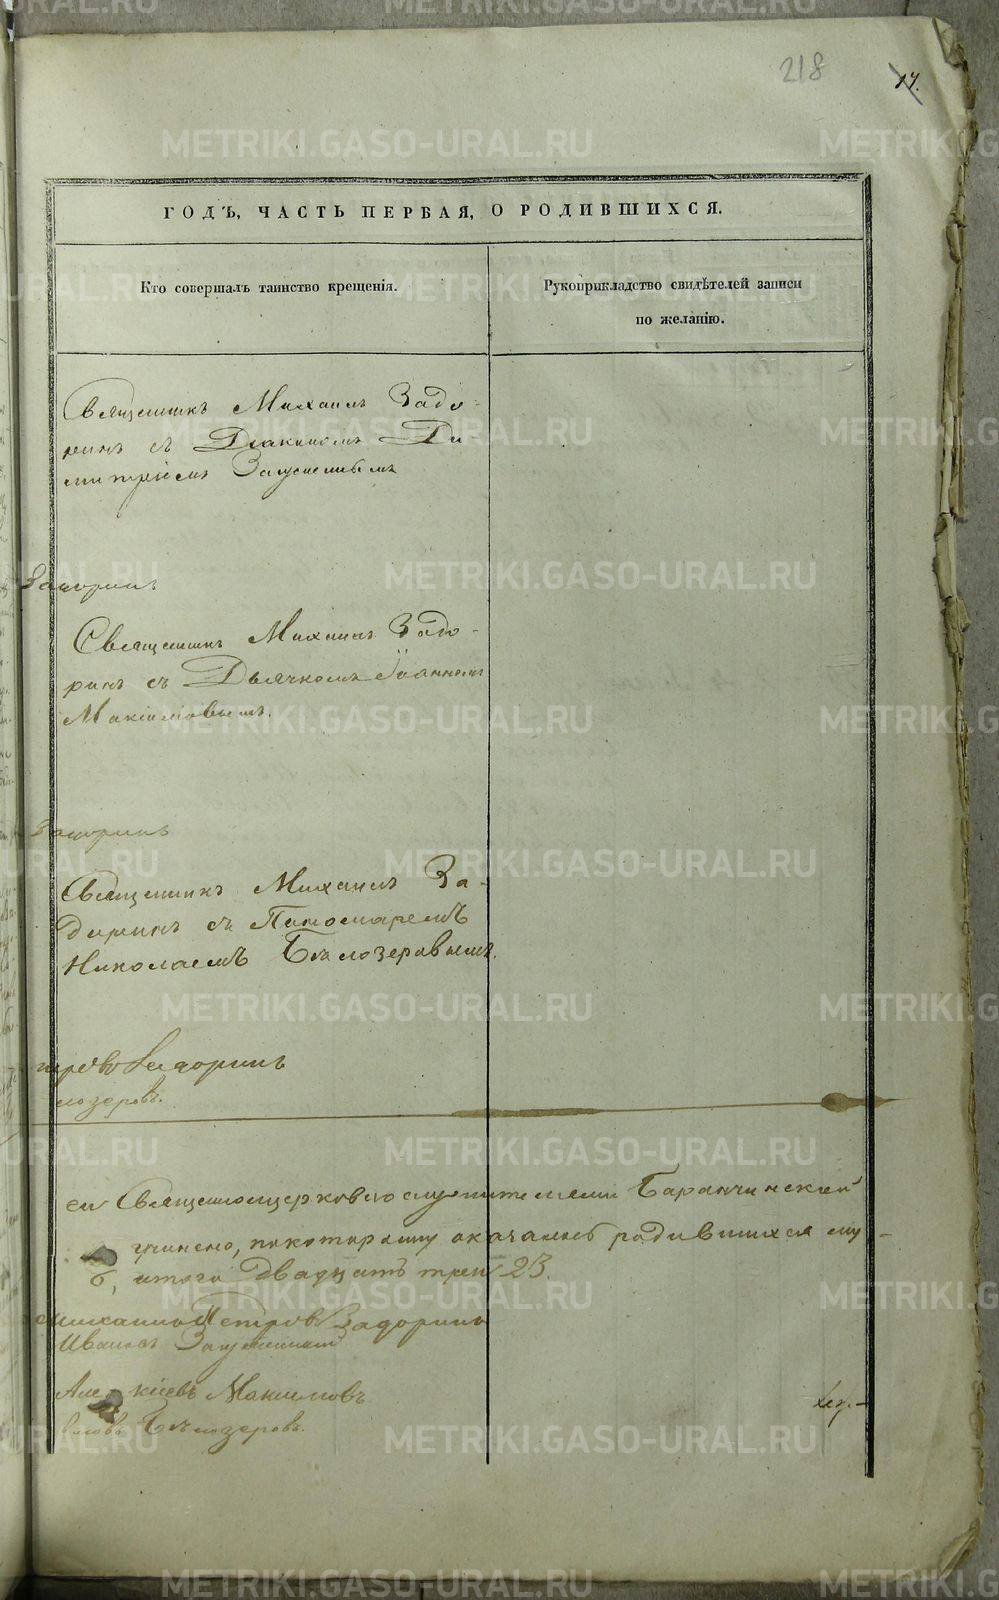 218
17.
ГОДЪ, ЧАСТЬ ПЕРВАЯ, О РОДИВШИХСЯ.
Кто совершалъ таинство крещенія.
Рукоприкладство свидѣтелей записи
по желанію.
Священникъ Михаилъ Задо-
ринъ съ Діакономъ Ди
митріемъ
Задоринъ
Священникъ Михаилъ Задо-
ринъ съ Дьячкомъ Іоанномъ
Максимовымъ.
Задоринъ
Священникъ Михаилъ За-
доринъ съ Пономаремъ
Николаемъ Бѣлозеровымъ.
Задоринъ
лозеровъ.
Священноцерковнослужителями Баранчинской
учинено, по которому оказалось родившихся му-
итого двадцать три 23.
Михаилъ Петровъ Задоринъ
Иванъ
Максимовъ
Бѣлозеровъ.
METRIKI.GASO-URAL.RU